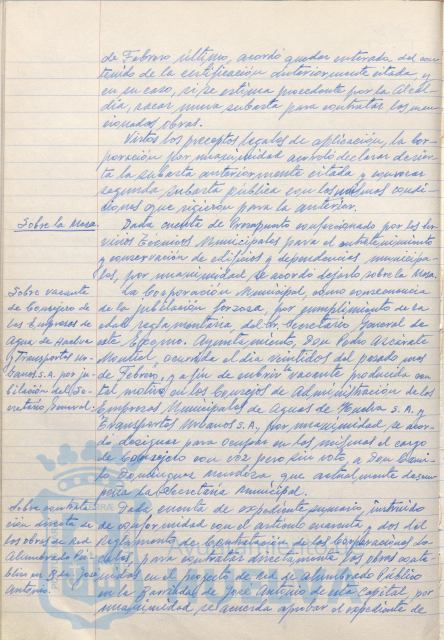 de Febrero último, acordó quedar enterada del con-
tenido de la certificación anteriormente citada y
en su caso, si se estima procedente por la Alcal-
día, sacar nueva subasta para contratar las men-
cionadas obras.
Vistos los preceptos legales de aplicación, la Cor-
poración por unanimidad acordó declarar desier-
ta la subasta anteriormente citada y convocar
segunda subasta pública con las mismas condi-
ciones que rigieron para la anterior.
Sobre la Mesa.
Dada cuenta de Presupuesto confeccionado por los Ser-
vicios Técnicos Municipales para el entretenimiento
y conservación de edificios y dependencias municipa-
les, por unanimidad se acordó dejarlo sobre la Mesa.
Sobre vacante
de Consejero de
las Empresas de
Agua de Huelva
y Transportes Ur-
banos, S.A. por ju-
bilación del Se-
cretario General.
La Corporación Municipal, como consecuencia
de la jubilación forzosa, por cumplimiento de la
edad reglamentaria, del Sr. Secretario General de
este Excmo. Ayuntamiento, Don Pedro
Montiel, ocurrida el día veintidos del pasado mes
de Febrero, y a fin de cubrir la vacante producida con
tal motivo en los Consejos de Administración de las
Empresas Municipales de Aguas de Huelva S.A. y
Transportes Urbanos S.A., por unanimidad, se acor-
dó designar para ocupar en las mismas el cargo
de Consejero con voz pero sin voto a Don
Domínguez Mendoza que actualmente desem-
peña la Secretaría Municipal.
Sobre contrata-
ción directa de
las obras de red
Alumbrado Pú-
blico en Bda. José
Antonio.
Dada cuenta de expediente sumario, instruido
de conformidad con el artículo cuarenta y dos del
Reglamento de Contratación de las Corporaciones Lo-
cales para contratar directamente las obras conte-
nidas en el proyecto de red de alumbrado Público
en la Barriada de José Antonio de esta Capital, por
unanimidad, se acuerda aprobar el expediente de